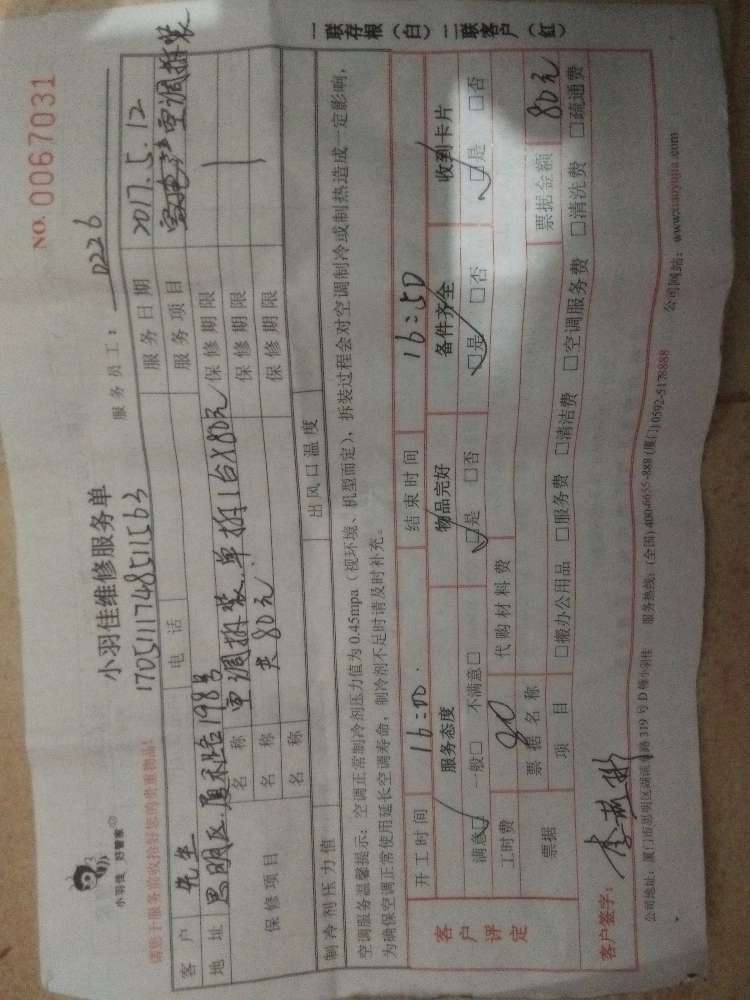 小羽佳 好管家
小羽佳维修服务单
NO. 0067031
170511174851563
服务员工: 0226
请您于服务前收拾好您的贵重物品!
客户 先生 电话 服务日期 2017.5.12
地址 思明区 198号 服务项目 空调拆装
保修项目 名称 空调拆装、单拆1台X80元 保修期限
名称 共80元 保修期限
名称 保修期限
制冷剂压力值 出风口温度
空调服务温馨提示: 空调正常制冷剂压力值为 0.45mpa (视环境、机型而定), 拆装过程会对空调制冷或制热造成一定影响,
为确保空调正常使用延长空调寿命, 制冷剂不足时请及时补充。
客户评定 开工时间 16:00 结束时间 16:50
服务态度 物品完好 备件齐全 收到卡片
满意□ 一般□ 不满意□ □是 □否 □是 □否 □是 □否
工时费 80 代购材料费
票据 票据名称 票据金额 80元
项目 □搬办公用品 □服务费 □清洁费 □空调服务费 □清洗费 □疏通费
客户签字:
公司地址: 厦门市思明区湖滨 路 319 号 D 幢小羽佳 服务热线: (全国) 400-6655-888 (厦门) 0592-5178888 公司网站: www.xiaoyujia.com
一联存根 (白) 二联客户 (红)